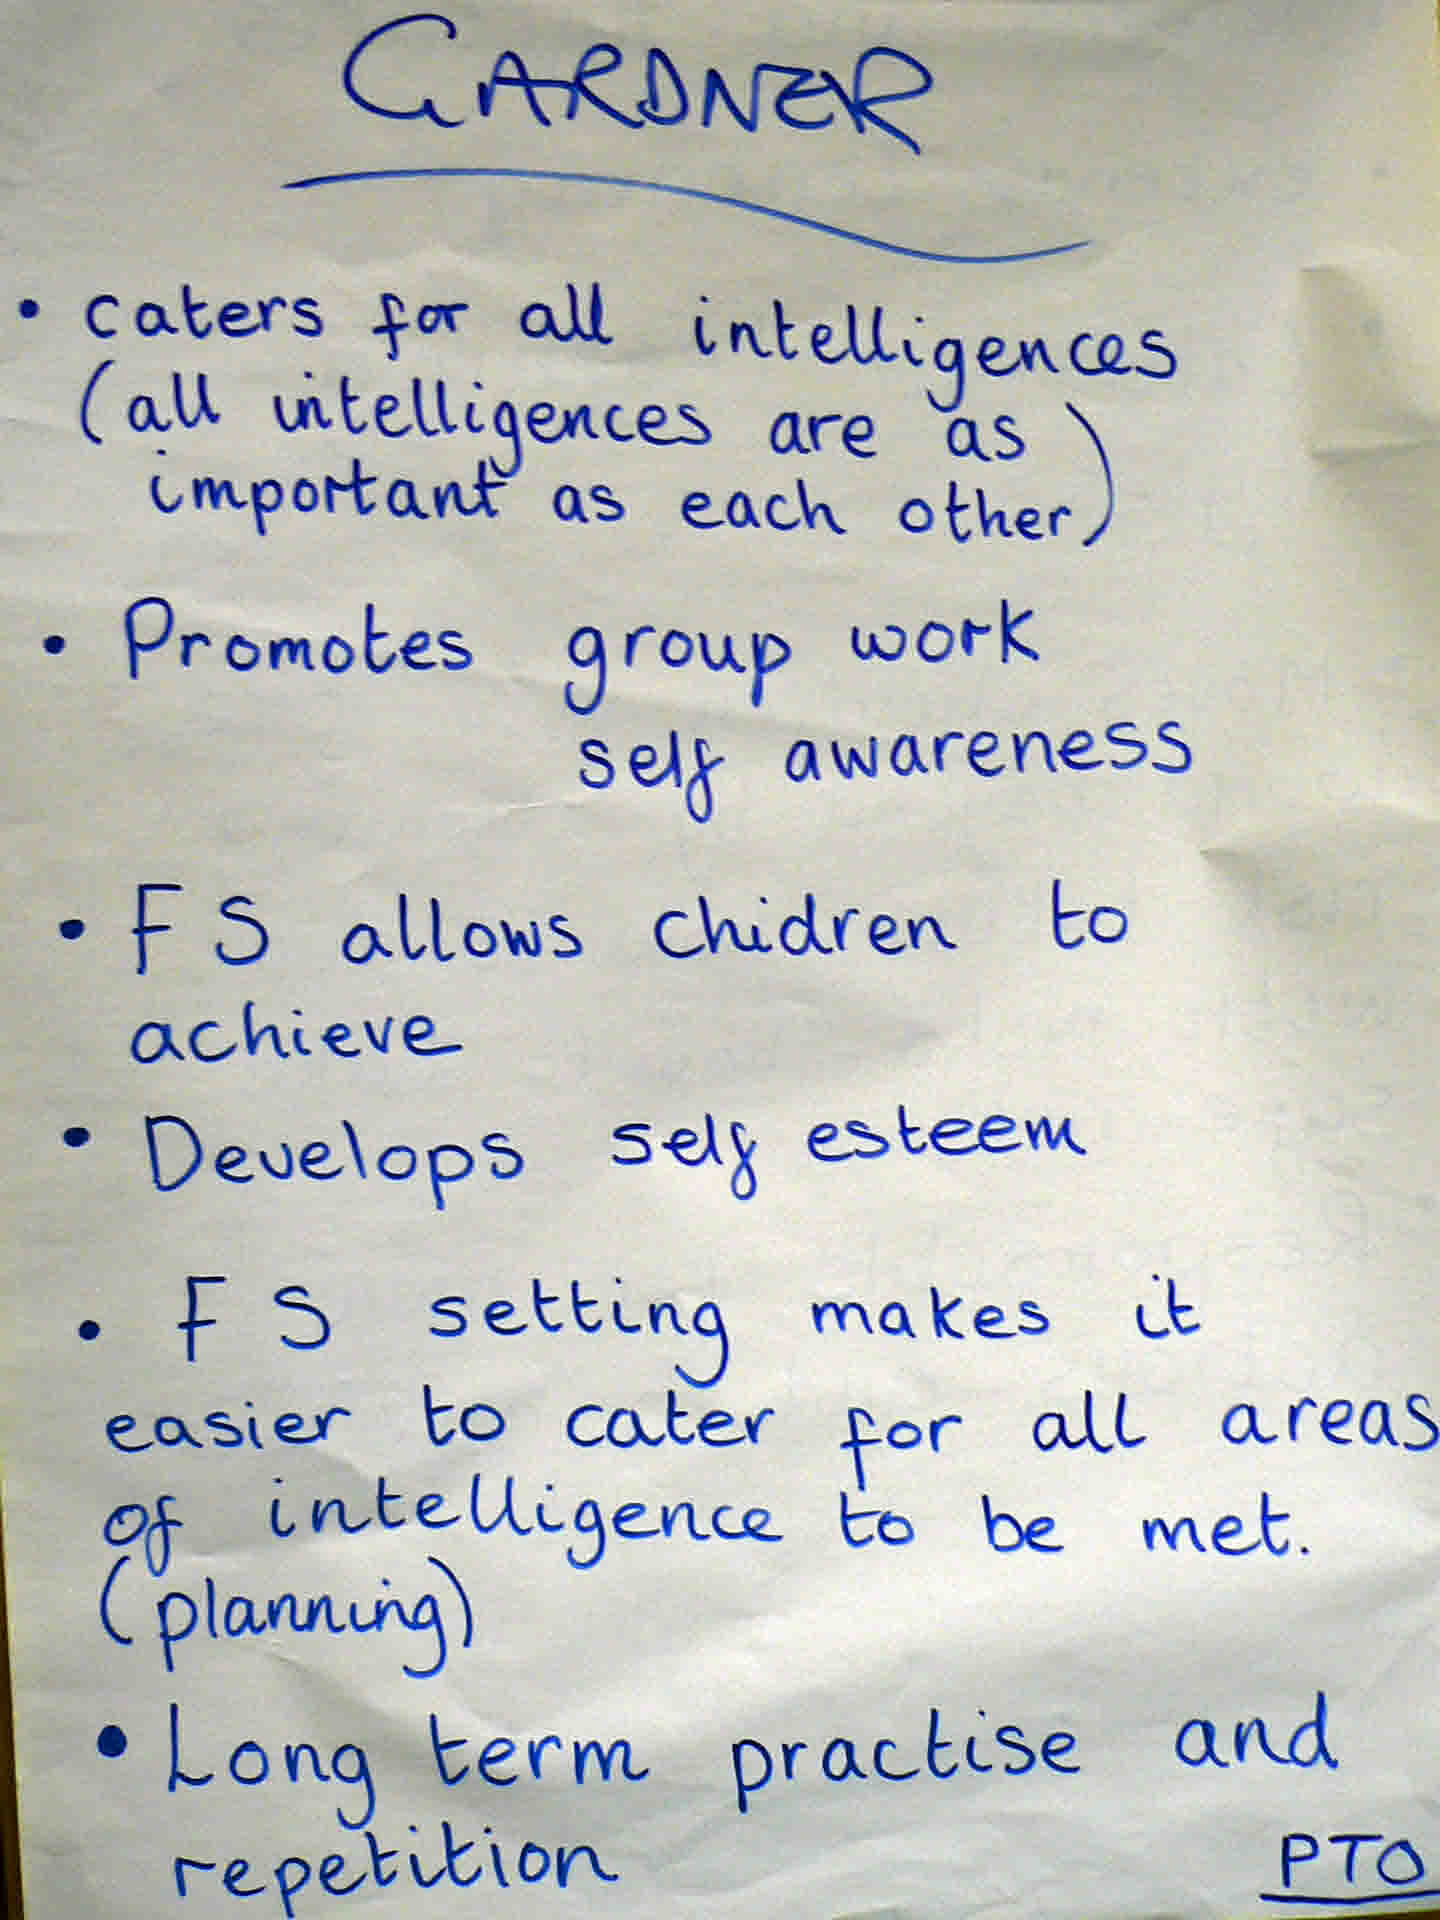 GARDNER
• caters for all intelligences
(all intelligences are as
important as each other)
• Promotes group work
self awareness
• FS allows chidren to
achieve
• Develops self esteem
• FS setting makes it
easier to cater for all areas
of intelligence to be met.
(planning)
• Long term practise and
repetition
PTO